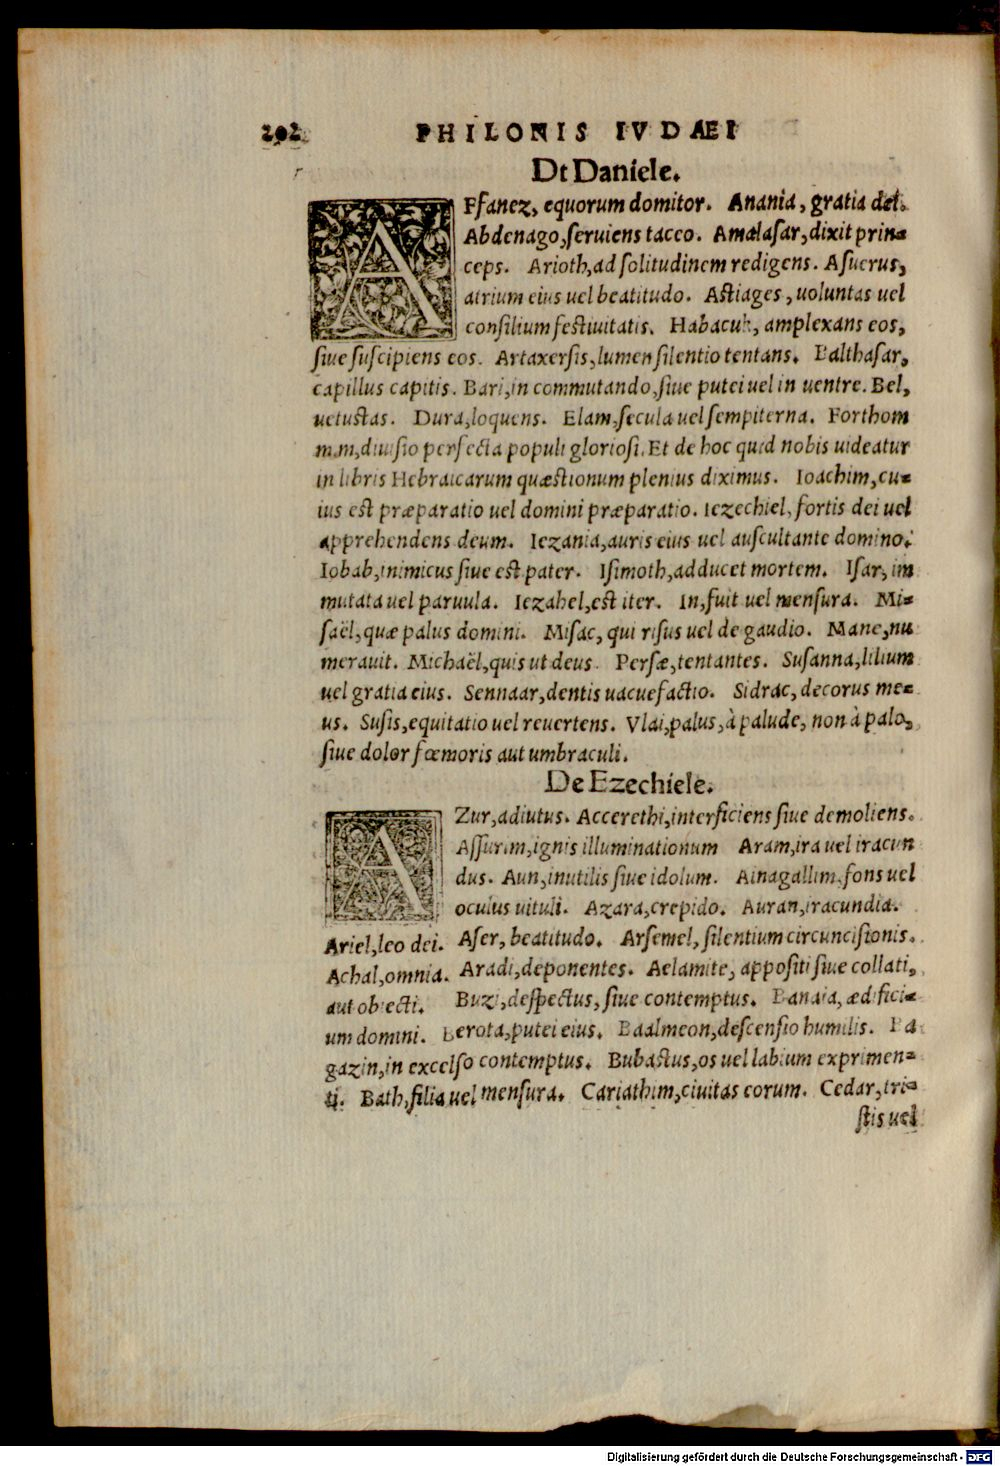 292
PHILONIS IVDAEI
Dt Daniele.
AFfanez, equorum domitor. Anania, gratia dei.
Abdenago, seruiens taceo. Amalasar, dixit prin=
ceps. Arioth, ad solitudinem redigens. Asuerus,
atrium eius uel beatitudo. Astiages, uoluntas uel
consilium festiuitatis. Habacuk, amplexans eos,
siue suscipiens eos. Artaxersis, lumen silentio tentans. Balthasar,
capillus capitis. Bari, in commutando, siue putei uel in uentre. Bel,
uetustas. Dura, loquens. Elam, secula uel sempiterna. Forthom
mim, diuisio perfecta populi gloriosi. Et de hoc quid nobis uideatur
in libris Hebraicarum quæstionum plenius diximus. Ioachim, cu=
ius est præparatio uel domini præparatio. Iezechiel, fortis dei uel
apprehendens deum. Iezania, auris eius uel auscultante domino.
Iobab, inimicus siue est pater. Isimoth, adducet mortem. Isar, im
mutata uel paruula. Iezahel, est iter. In, fuit uel mensura. Mi=
saël, quæ palus domini. Misac, qui risus uel de gaudio. Mane, nu
merauit. Michaël, quis ut deus. Persæ, tentantes. Susanna, lilium
uel gratia eius. Sennaar, dentis uacuefactio. Sidrac, decorus me=
us. Susis, equitatio uel reuertens. Vlai, palus, à palude, non à palo,
siue dolor fœmoris aut umbraculi.
De Ezechiele.
AZur, adiutus. Accerethi, interficiens siue demoliens.
Assurim, ignis illuminationum Aram, ira uel iracun
dus. Aun, inutilis siue idolum. Ainagallim, fons uel
oculus uituli. Azara, crepido. Auran, iracundia.
Ariel, leo dei. Aser, beatitudo. Arsemel, silentium circuncisionis.
Achal, omnia. Aradi, deponentes. Aelamite, appositi siue collati,
aut obiecti. Buzi, despectus, siue contemptus. Banaia, ædifici=
um domini. Berota, putei eius. Baalmeon, descensio humilis. Ba
gazin, in excelso contemptus. Bubastus, os uel labium exprimen=
ti. Bath, filia uel mensura. Cariathim, ciuitas eorum. Cedar, tri=
stis uel
Digitalisierung gefördert durch die Deutsche Forschungsgemeinschaft - DFG